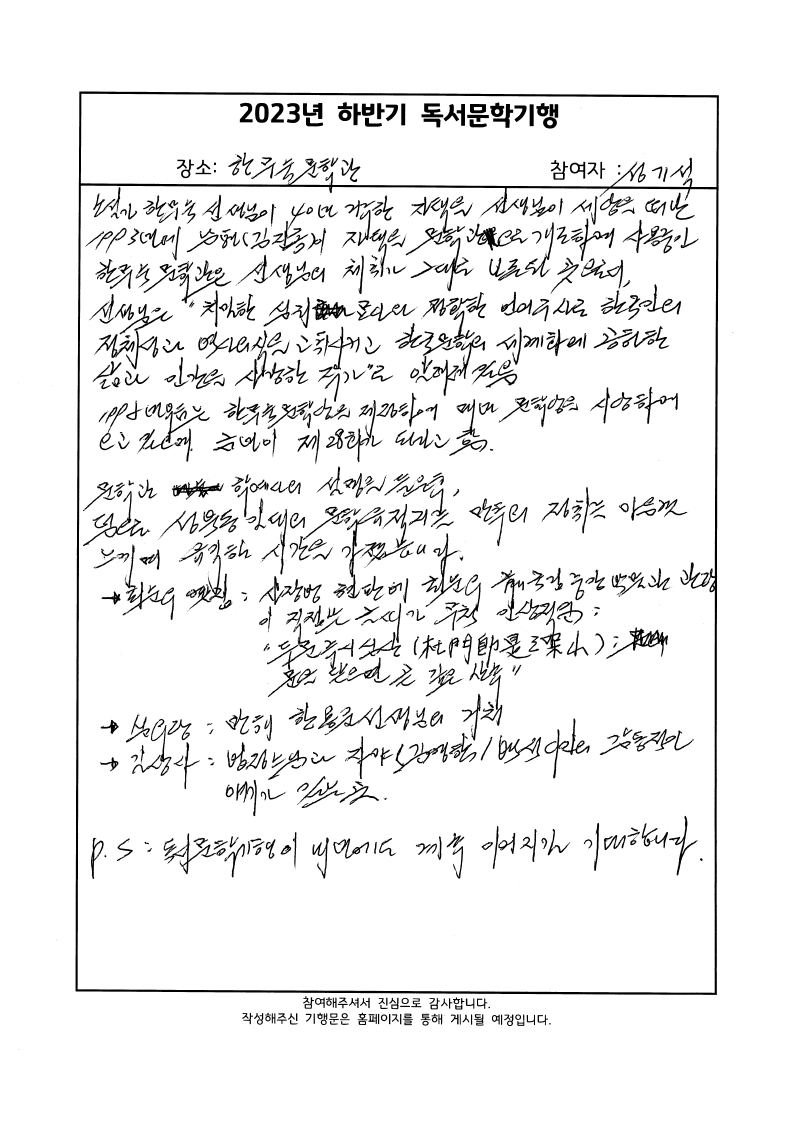 2023년 하반기 독서문학기행
장소: 한무숙문학관 참여자 : 성기석
소설가 한무숙 선생님이 40여년 거주한 자택을 선생님이 세상을 떠난
1993년에 남편(김진흥)이 자택을 문학관으로 개조하여 사용중인
한무숙 문학관은 선생님의 체취가 그대로 보존된 곳으로,
선생님은 "치열한 심리 묘사와 정확한 언어구사로 한국인의
정체성과 역사의식을 고취시키고 한국문학의 세계화에 공헌한
삶과 인간을 사랑한 작가"로 알려져 있음
1995년부터는 한무숙문학상을 제정하여 매년 문학상을 시상하여
오고 있는데, 금년이 제28회가 된다고 함.
문학관 학예사의 설명을 들은후,
담으로 성북동 일대의 문학유적지를 만추의 정취를 마음껏
느끼며 유익한 시간을 가졌습니다.
→ 최순우 옛집 : 사랑방 현판에 최순우 前 국립중앙박물관 관장
이 직접쓴 글씨가 무척 인상적임 :
"두문즉시심산 (杜門卽是深山) :
문을 닫으면 곧 깊은 산중"
→ 심우장 : 만해 한용운선생님의 거처
→ 길상사 : 법정스님과 자야(김영한)/백석시인의 감동적인
얘기가 있는 곳.
P.S : 독서문학기행이 내년에도 계속 이어지길 기대합니다.
참여해주셔서 진심으로 감사합니다.
작성해주신 기행문은 홈페이지를 통해 게시될 예정입니다.